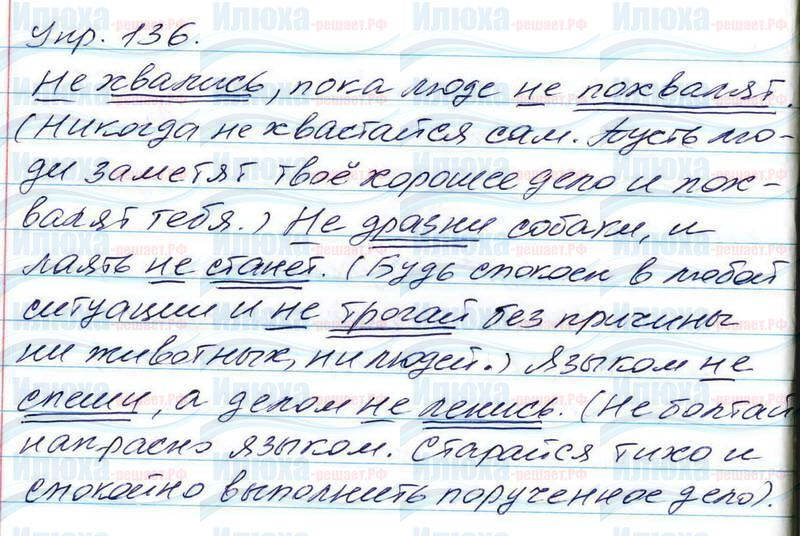 Упр. 136.
Не хвались, пока люде не похвалят.
(Никогда не хвастайся сам. Пусть лю-
ди заметят твоё хорошее дело и пох-
валят тебя.) Не дразни собаки, и
лаять не станет. (Будь спокоен в любой
ситуации и не трогай без причины
ни животных, ни людей.) Языком не
спеши, а делом не ленись. (Не болтай
напрасно языком. Старайся тихо и
спокойно выполнить порученное дело).